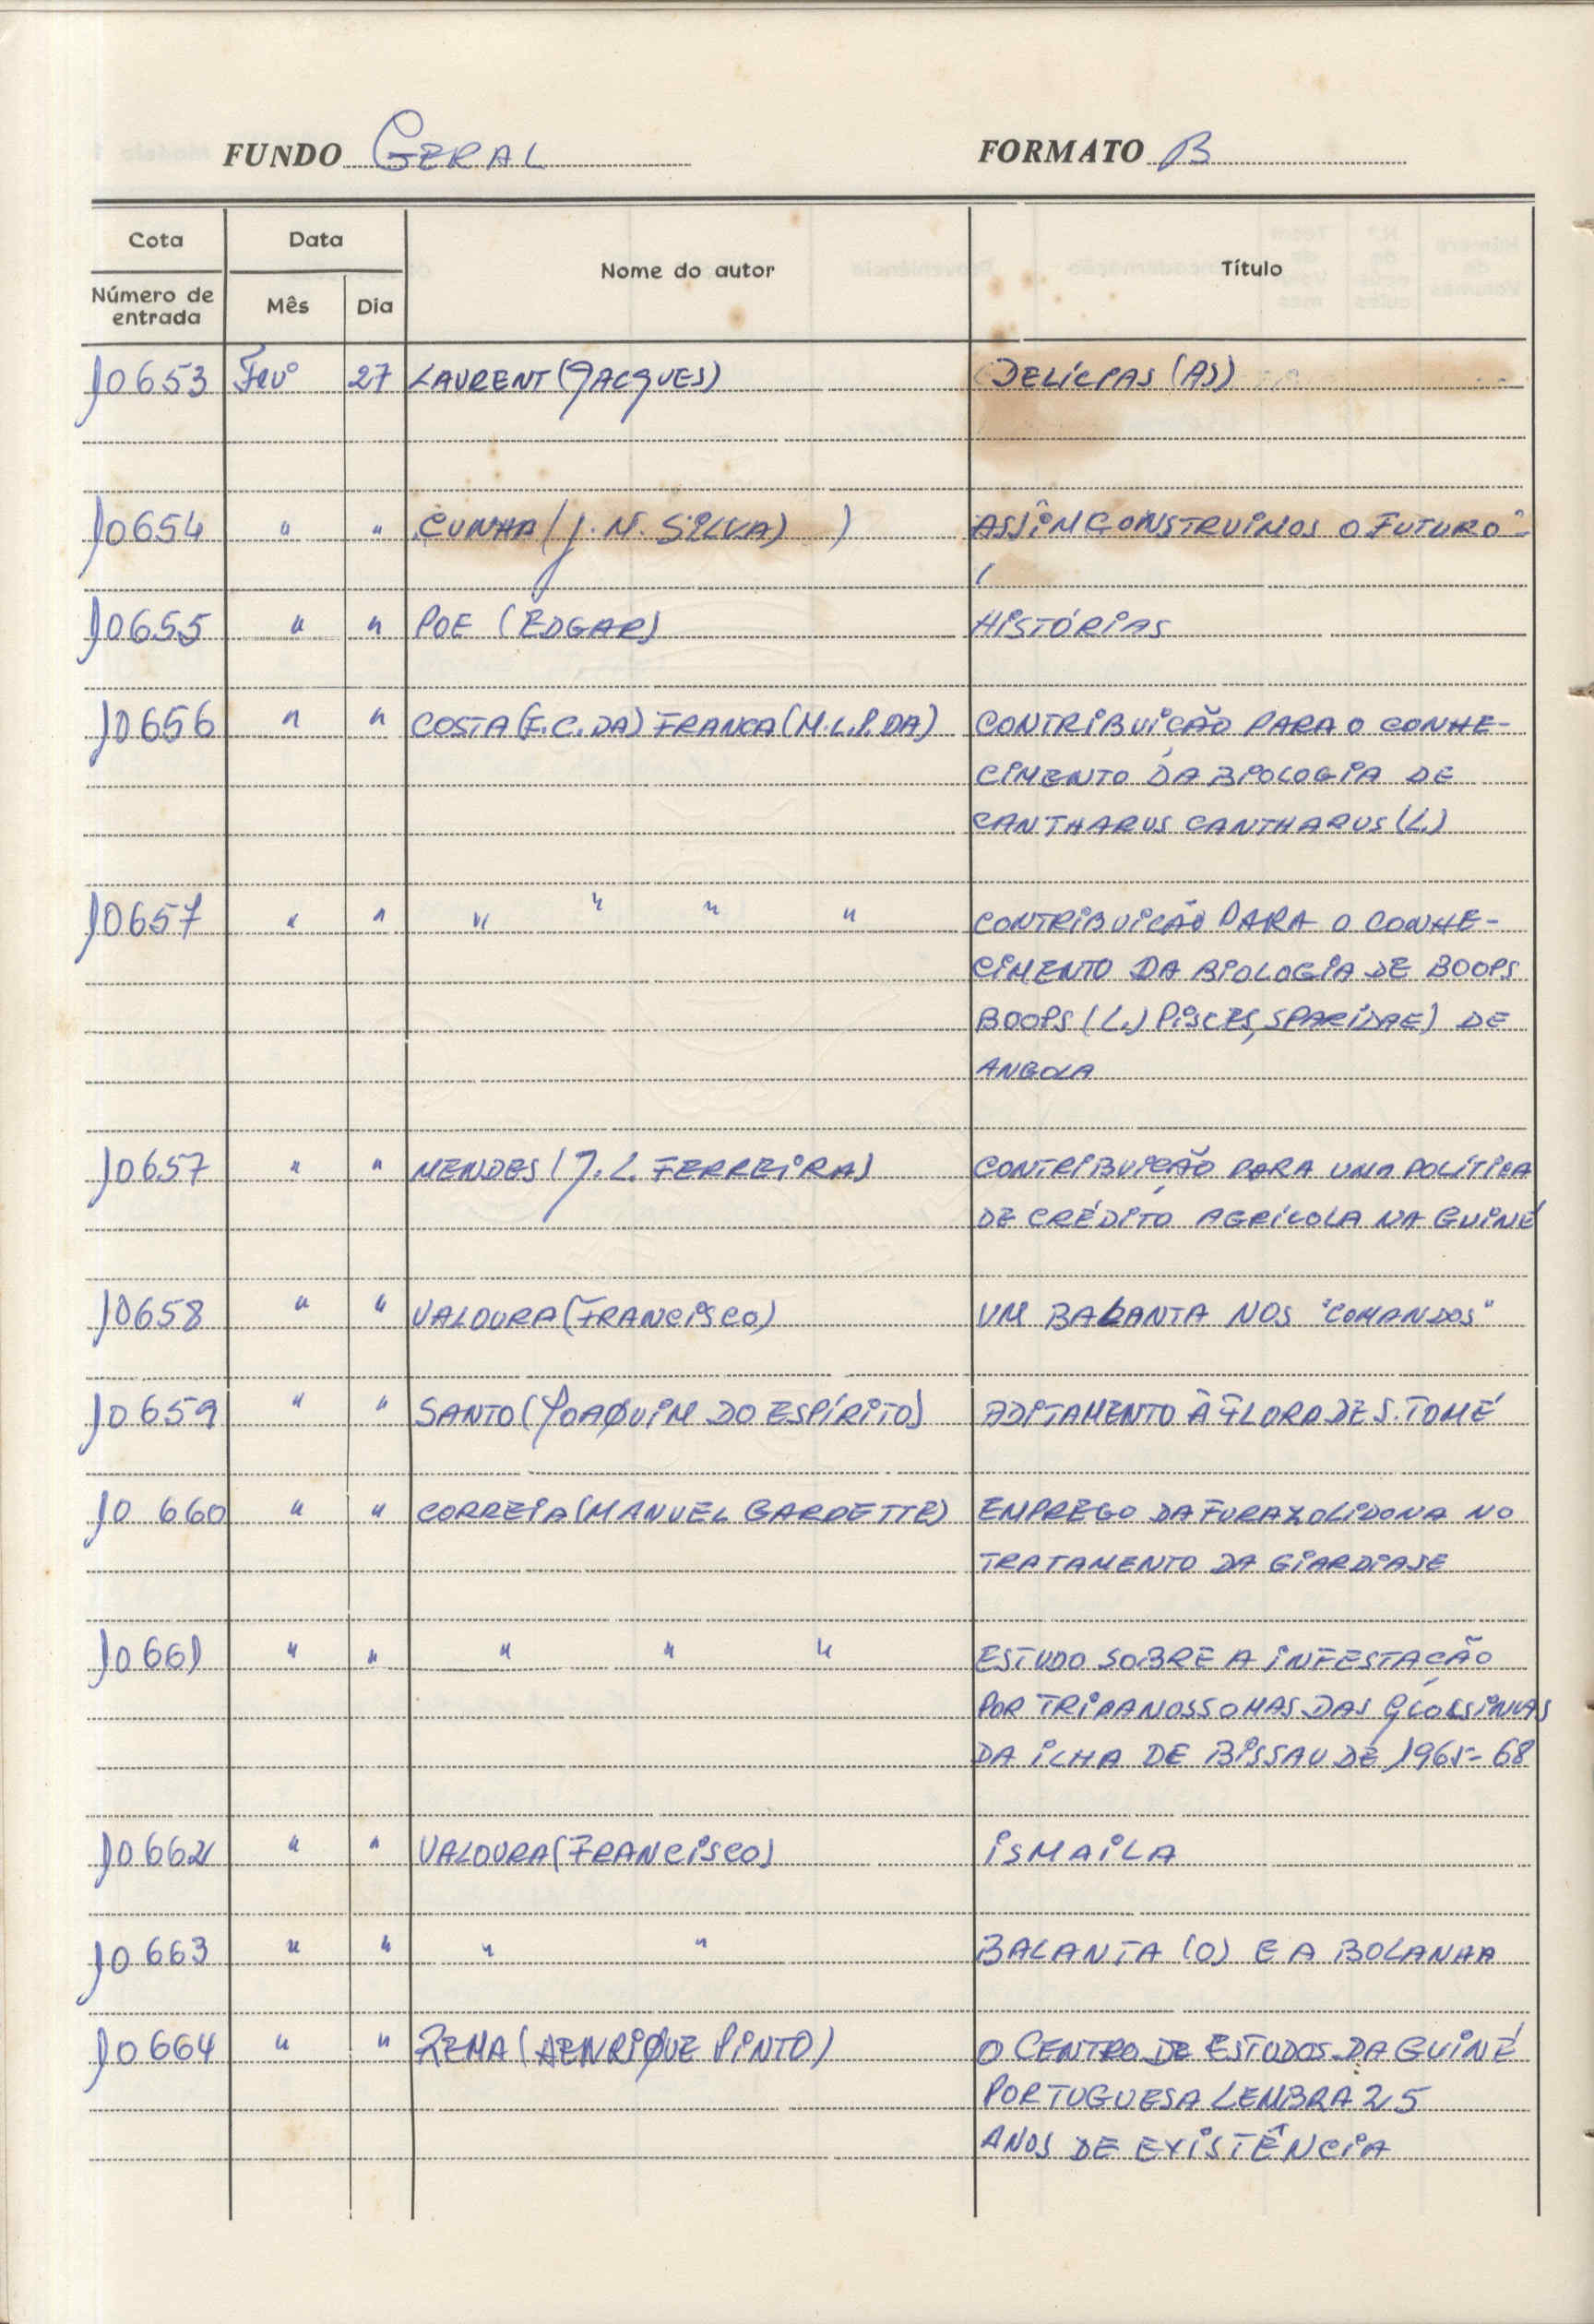 FUNDO GERAL FORMATO B
Cota Data Nome do autor Título
Número de entrada Mês Dia
10653 Fevº 27 LAURENT (JACQUES) DELÍCIAS (AS)
10654 " " CUNHA (J. N. SILVA) ) ASSIM CONSTRUIMOS O FUTURO
10655 " " POE (EDGAR) HISTÓRIAS
10656 " " COSTA (F. C. DA) FRANCA (M. L. P. DA) CONTRIBUIÇÃO PARA O CONHE-
CIMENTO DA BIOLOGIA DE
CANTHARUS CANTHARUS (L.)
10657 " " " " " " CONTRIBUICÃO PARA O CONHE-
CIMENTO DA BIOLOGIA DE BOOPS
BOOPS (L.) PISCES, SPARIDAE) DE
ANGOLA
10657 " " MENDES (J. L. FERREIRA) CONTRIBUIÇÃO PARA UMA POLÍTICA
DE CRÉDITO AGRÍCOLA NA GUINÉ
10658 " " VALOURA (FRANCISCO) UM BALANTA NOS "COMANDOS"
10659 " " SANTO (JOAQUIM DO ESPÍRITO) ADITAMENTO À FLORA DE S. TOMÉ
10660 " " CORREIA (MANUEL GARDETTE) EMPREGO DA FURAXOLIDONA NO
TRATAMENTO DA GIARDIASE
10661 " " " " " ESTUDO SOBRE A INFESTAÇÃO
POR TRIPANOSSOMAS DAS GLOSSINAS
DA ILHA DE BISSAU DE 1965-68
10662 " " VALOURA (FRANCISCO) ISMAILA
10663 " " " " BALANTA (O) E A BOLANHA
10664 " " REMA (HENRIQUE PINTO) O CENTRO DE ESTUDOS DA GUINÉ
PORTUGUESA LEMBRA 25
ANOS DE EXISTÊNCIA